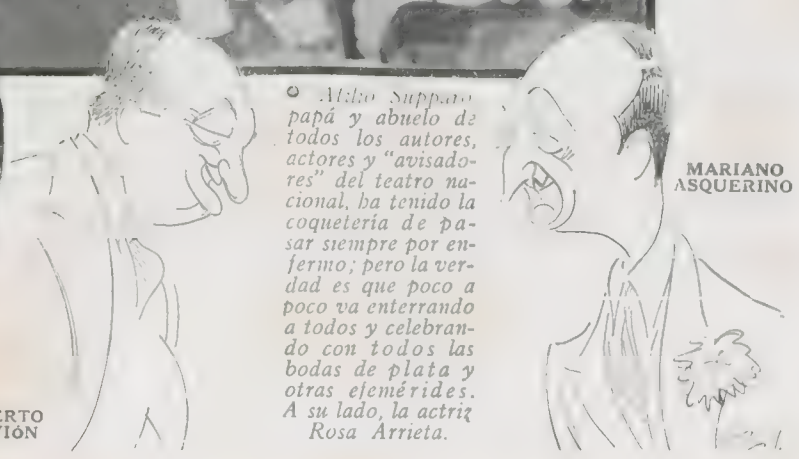 Atilio Supparo
papá y abuelo de
todos los autores,
actores y "avisado-
res" del teatro na-
cional, ha tenido la
coquetería de pa-
sar siempre por en-
fermo; pero la ver-
dad es que poco a
poco va enterrando
a todos y celebran-
do con todos las
bodas de plata y
otras efemérides.
A su lado, la actriz
Rosa Arrieta.
MARIANO
ASQUERINO
ERTO
IÓN